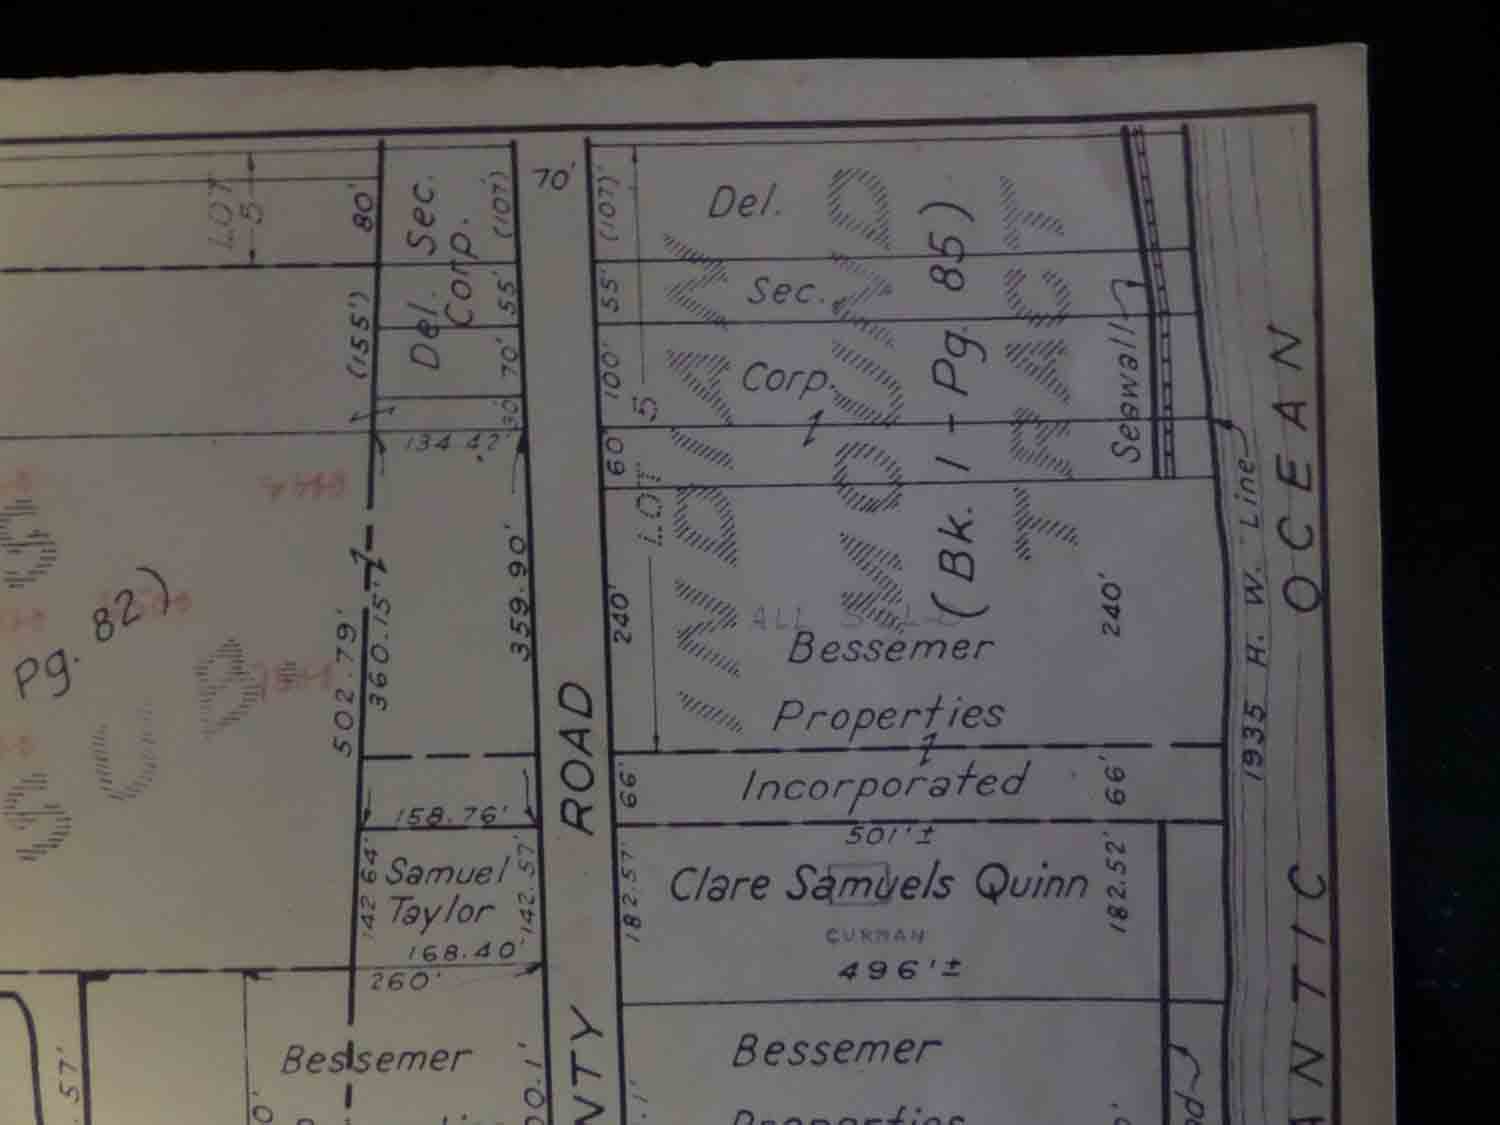 LOT
5
80'
Del. Sec.
Corp.
(107')
70'
(107)'
Del.
(155')
55'
55'
Sec.
70'
100'
Corp.
30'
134.42'
60'
LOT 5
INDIAN
MOUND
TRACT
(Bk. 1 - Pg. 85)
Seawall
1935 H. W. Line
ATLANTIC OCEAN
Pg. 82)
502.79'
360.15'
359.90'
240'
240'
Bessemer
Properties
Incorporated
66'
66'
158.76'
501'±
142.64'
Samuel
Taylor
142.57'
168.40'
260'
182.57'
Clare Samuels Quinn
182.52'
CURMAN
496'±
ROAD
NTY
Bessemer
Bessemer
Properties
.57'
00.1'
.1'